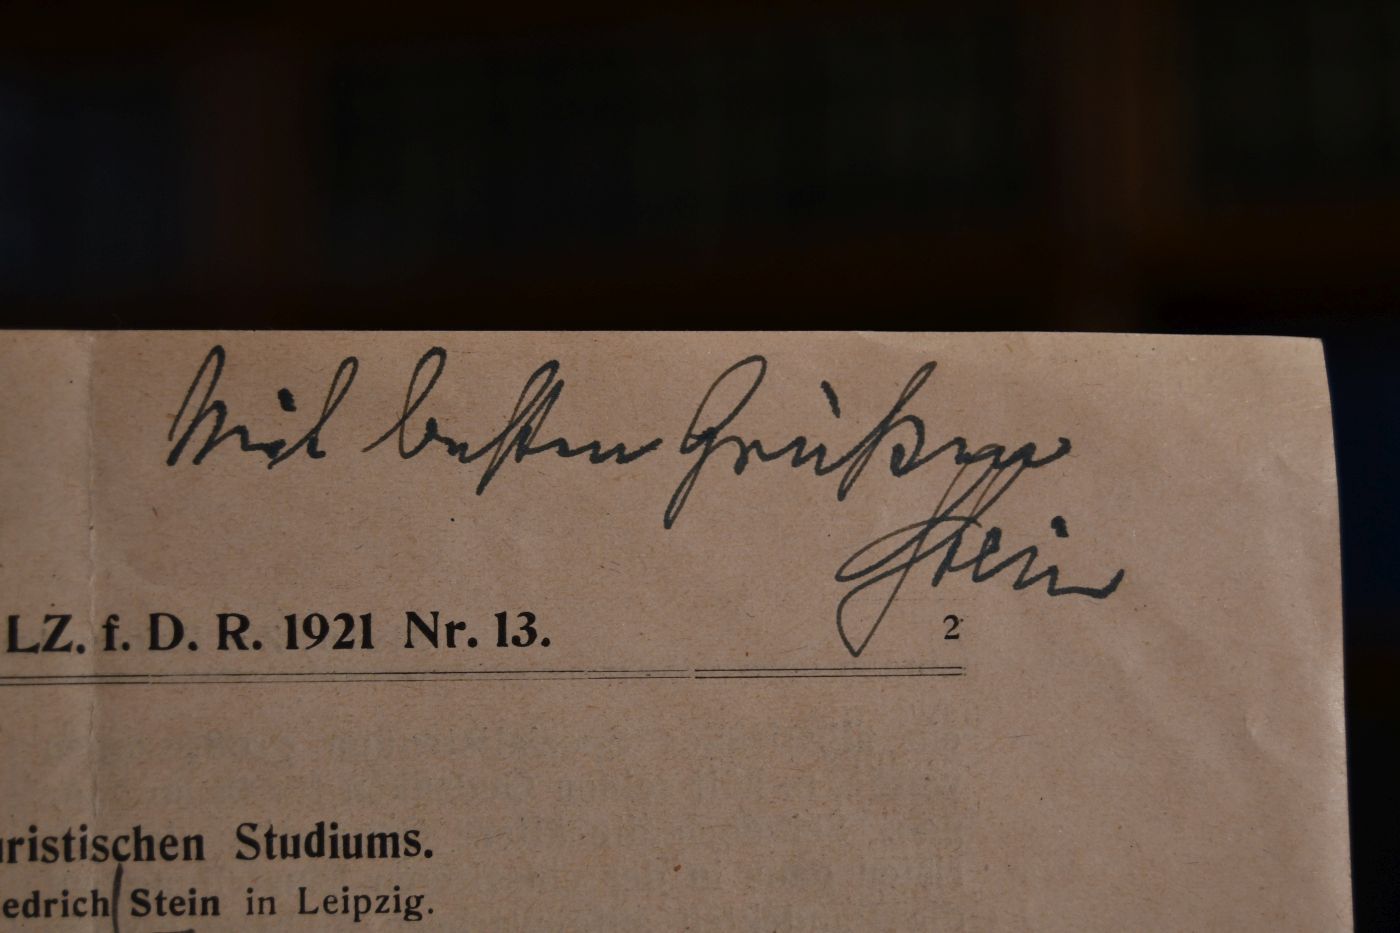 Mit besten Grüßen
Stein
LZ. f. D. R. 1921 Nr. 13.
2
uristischen Studiums.
iedrich Stein in Leipzig.